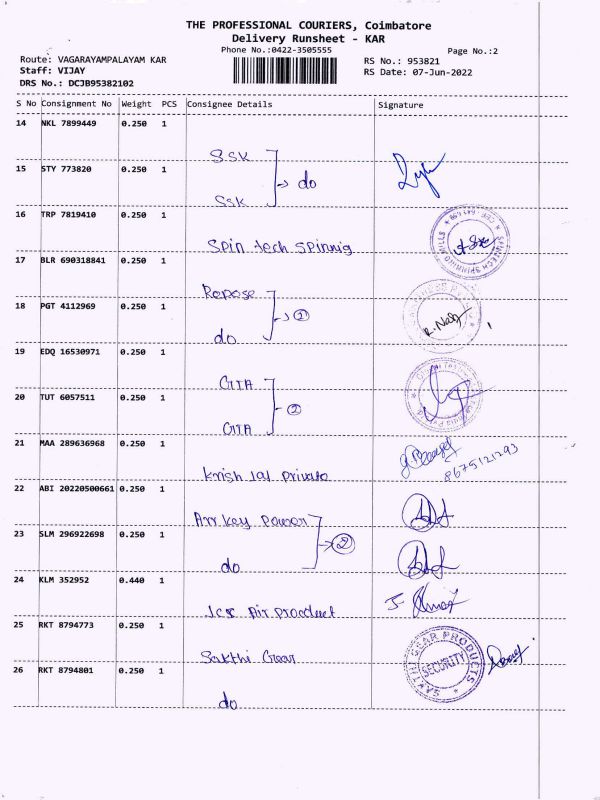 THE PROFESSIONAL COURIERS, Coimbatore
Delivery Runsheet - KAR
Phone No.:0422-3505555
Page No.:2
Route: VAGARAYAMPALAYAM KAR
RS No.: 953821
Staff: VIJAY
RS Date: 07-Jun-2022
DRS No.: DCJB95382102
S No Consignment No Weight PCS Consignee Details Signature
14 NKL 7899449 0.250 1
SSK
15 STY 773820 0.250 1
do
SSK
16 TRP 7819410 0.250 1
Spin tech Spinnig
SPINTECH SPINNING MILLS
17 BLR 690318841 0.250 1
Repose
18 PGT 4112969 0.250 1
①
do
19 EDQ 16530971 0.250 1
GTA
20 TUT 6057511 0.250 1
②
GTA
21 MAA 289636968 0.250 1
8675121293
Krish private
22 ABI 20220500661 0.250 1
Arr key power
23 SLM 296922698 0.250 1
②
do
24 KLM 352952 0.440 1
Air product
25 RKT 8794773 0.250 1
Sakthi Gear
SAKTHI GEAR PRODUCTS
SECURITY
26 RKT 8794801 0.250 1
do